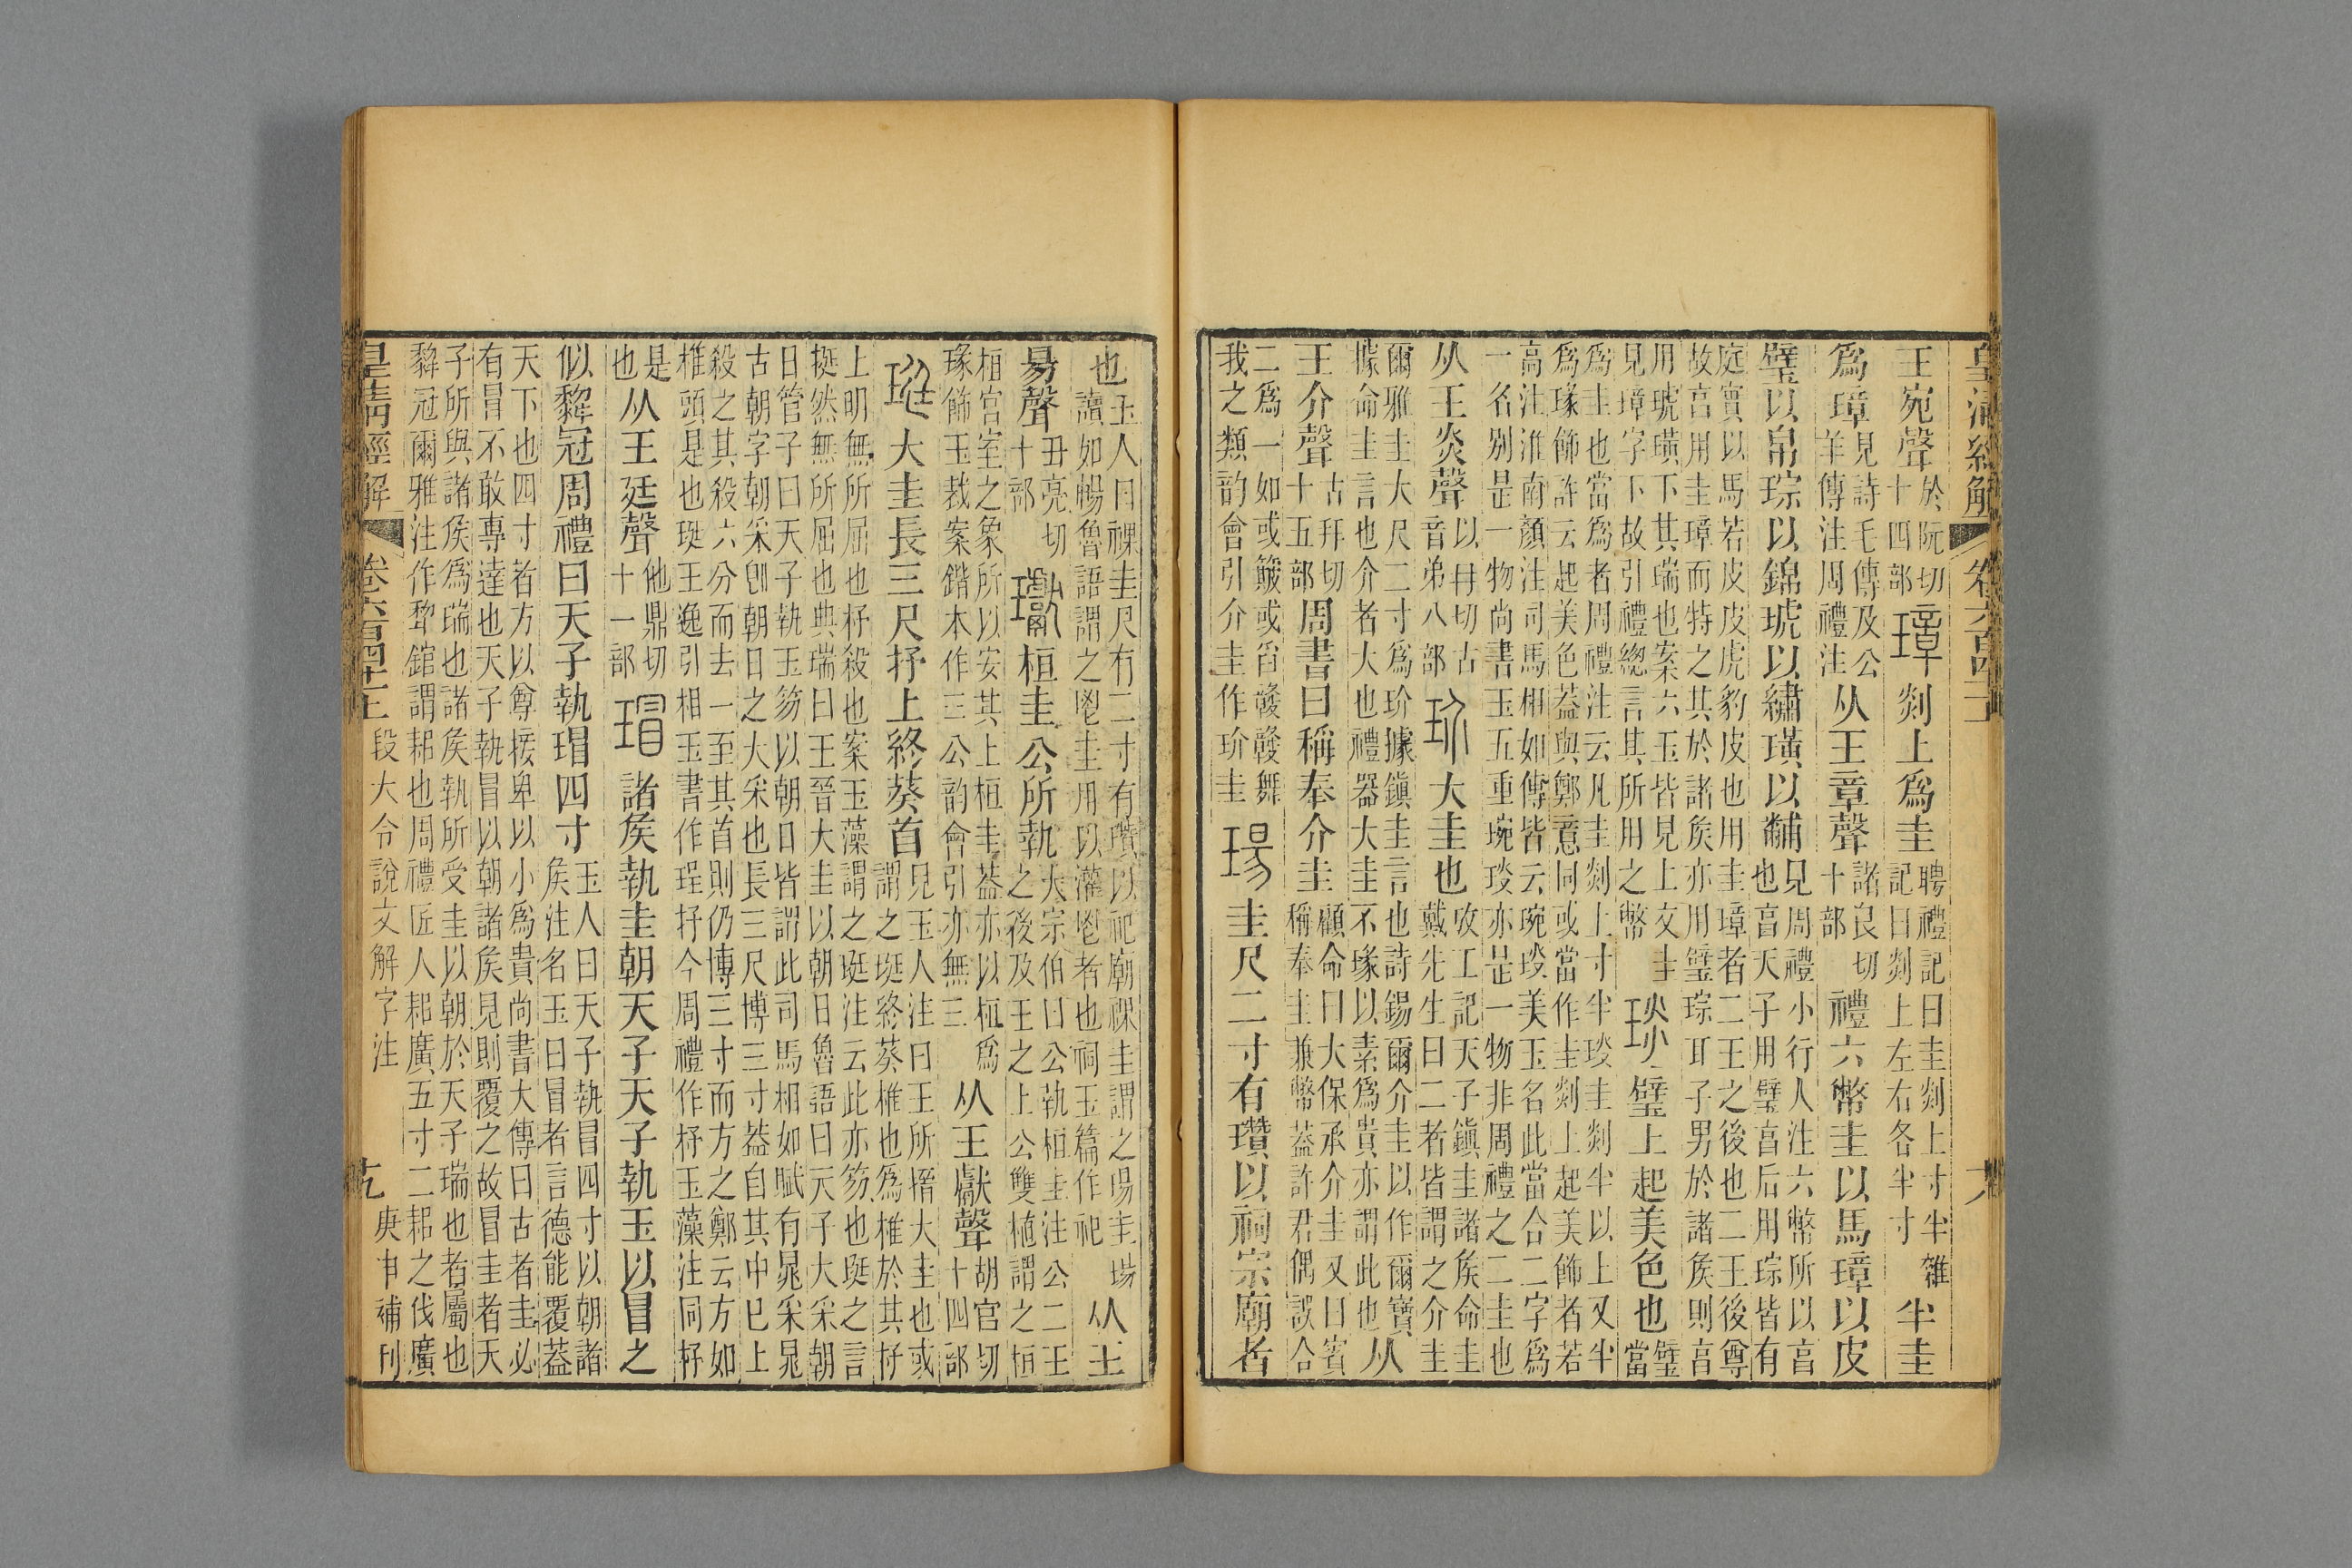 皇清經解 卷六百四十一上 六
王宛聲於阮切十四部璋剡上爲圭聘禮記曰圭剡上寸半雜記曰剡上左右各半寸半圭
爲璋見詩毛傳及公羊傳注周禮注从王章聲諸良切十部禮六幣圭以馬璋以皮
璧以帛琮以錦琥以繡璜以黼見周禮小行人注六幣所以亯也亯天子用璧亯后用琮皆有
庭實以馬若皮皮虎豹皮也用圭璋者二王之後也二王後尊故亯用圭璋而特之其於諸矦亦用璧琮耳子男於諸矦則亯
用琥璜下其瑞也案六玉皆見上文圭見璋字下故引禮緫言其所用之幣琰璧上起美色也璧當
爲圭也當爲者周禮注云凡圭剡上寸半琰圭剡半以上又半爲瑑飾許云起美色葢與鄭意同或當作圭剡上起美飾者若
高注淮南顏注司馬相如傳皆云琬琰美玉名此當合二字爲一名別是一物尚書玉五重琬琰亦是一物非周禮之二圭也
从王炎聲以冄切古音弟八部玠大圭也攷工記天子鎭圭諸矦命圭戴先生曰二者皆謂之介圭
爾雅圭大尺二寸爲玠據鎭圭言也詩錫爾介圭以作爾寶據命圭言也介者大也禮器大圭不瑑以素爲貴亦謂此也从
王介聲古拜切十五部周書曰稱奉介圭顧命曰大保承介圭又曰賓稱奉圭兼幣葢許君偶誤合
二爲一如或簸或舀𡔷𡔷舞我之類韵會引介圭作玠圭瑒圭尺二寸有瓚以祠宗廟者
也玉人曰祼圭尺有二寸有瓚以祀廟祼圭謂之瑒圭瑒讀如暢魯語謂之鬯圭用以灌鬯者也祠玉篇作祀从王
昜聲丑亮切十部瓛桓圭公所執大宗伯曰公執桓圭注公二王之後及王之上公雙植謂之桓
桓宮室之象所以安其上桓圭葢亦以桓爲瑑飾玉裁案鍇本作三公韵會引亦無三从王獻聲胡官切十四部
珽大圭長三尺抒上終葵首見玉人注曰王所搢大圭也或謂之珽終葵椎也爲椎於其杼
上明無所屈也杼殺也案玉藻謂之珽注云此亦笏也珽之言挺然無所屈也典瑞曰王晉大圭以朝日魯語曰天子大采朝
日管子曰天子執玉笏以朝日皆謂此司馬相如賦有晁采晁古朝字朝采卽朝日之大采也長三尺博三寸葢自其中已上
殺之其殺六分而去一至其首則仍博三寸而方之鄭云方如椎頭是也珽王逸引相玉書作珵抒今周禮作杼玉藻注同抒
是也从王廷聲他鼎切十一部瑁諸矦執圭朝天子天子執玉以冒之
似犂冠周禮曰天子執瑁四寸玉人曰天子執冒四寸以朝諸矦注名玉曰冒者言德能覆葢
天下也四寸者方以尊接卑以小爲貴尚書大傳曰古者圭必有冒不敢專達也天子執冒以朝諸矦見則覆之故冒圭者天
子所與諸矦爲瑞也諸矦執所受圭以朝於天子瑞也者屬也犂冠爾雅注作犂錧謂耜也周禮匠人耜廣五寸二耜之伐廣
皇清經解 卷六百四十一上 段大令說文解字注 七 庚申補刊